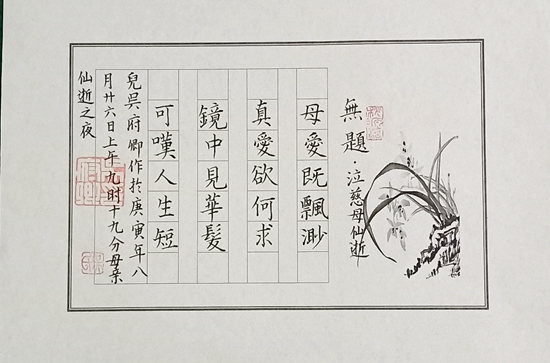 無題·泣慈母仙逝
母愛既飄渺
真愛欲何求
鏡中見華髮
可嘆人生短
兒吳府卿作於庚寅年八
月廿六日上午九时十九分母亲
仙逝之夜